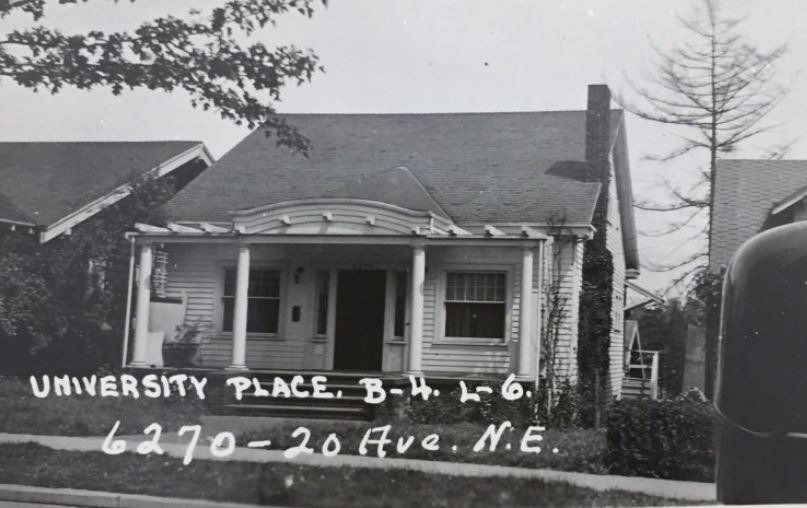 UNIVERSITY PLACE. B-4. L-6.
6270-20 Ave. N.E.